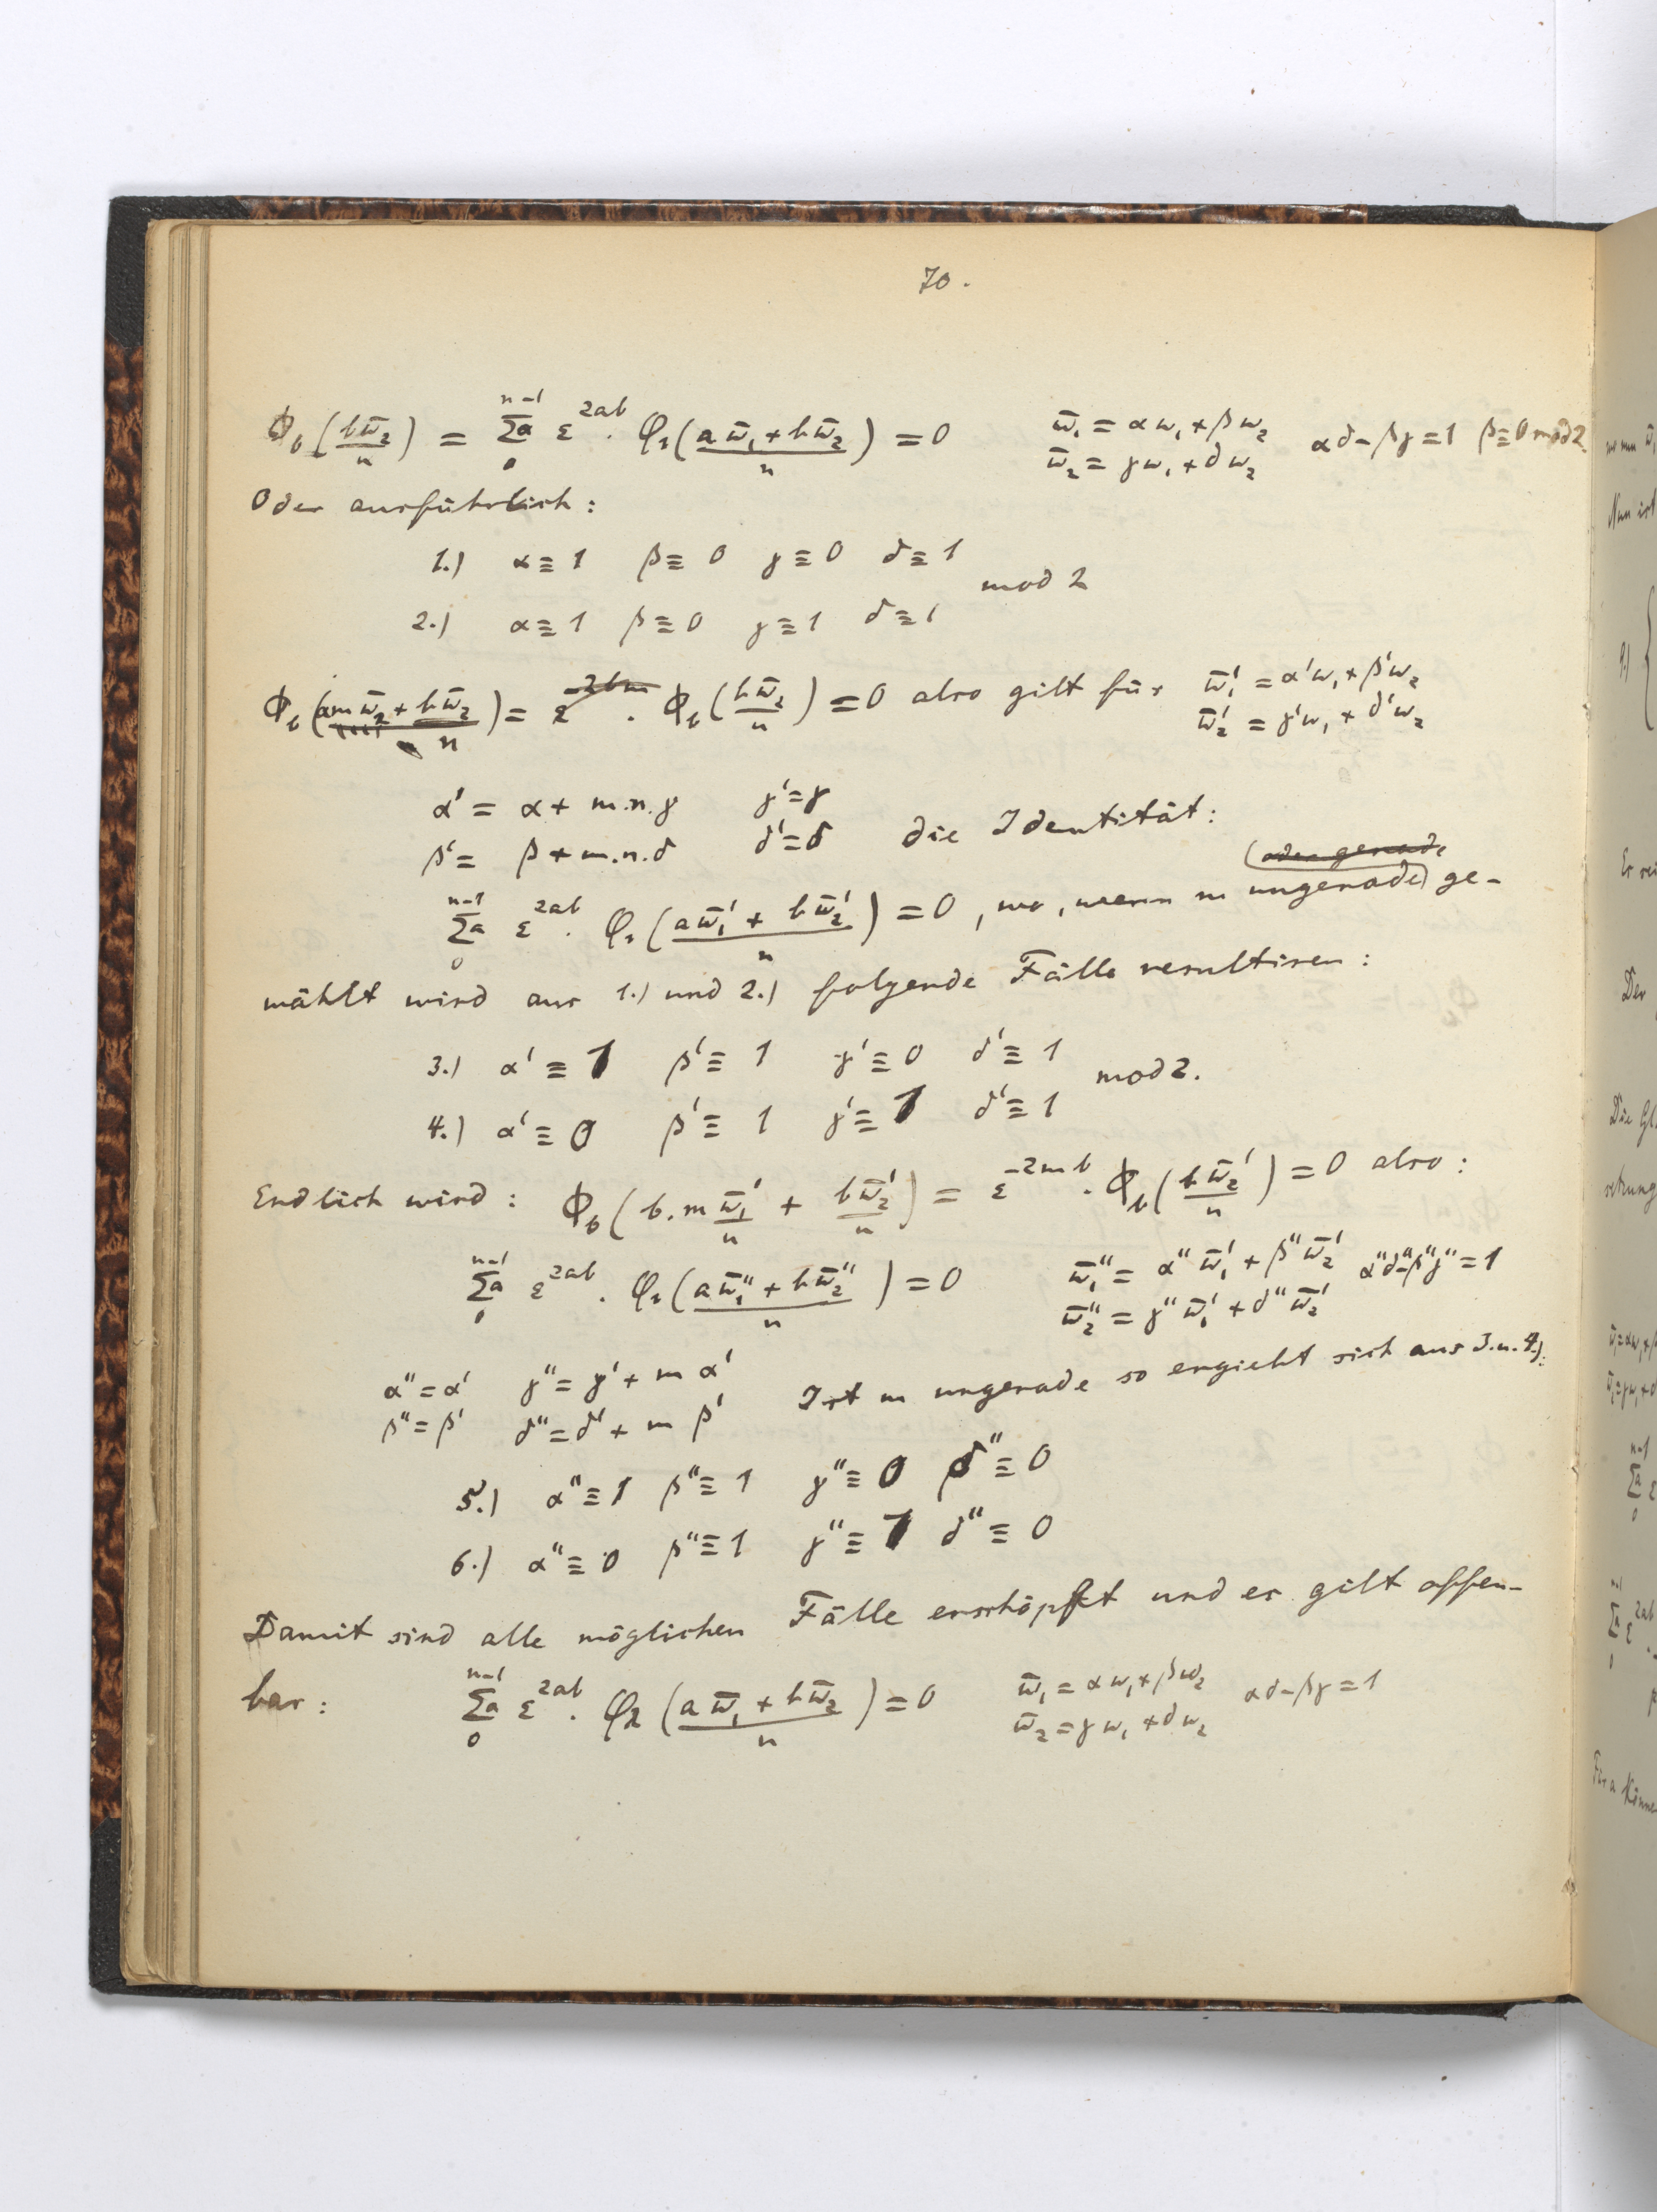 70.
Φ_b (b ω̄₂ / n) = Σa_0^{n-1} ε^{2ab} · φ₁((a ω̄₁ + b ω̄₂) / n) = 0   ω̄₁ = αω₁ + βω₂   αδ - βγ = 1   β ≡ 0 mod 2.
ω̄₂ = γω₁ + δω₂
Oder ausführlich:
1.) α ≡ 1   β ≡ 0   γ ≡ 0   δ ≡ 1
mod 2
2.) α ≡ 1   β ≡ 0   γ ≡ 1   δ ≡ 1
= 0 also gilt für   ω̄₁' = α'ω₁ + β'ω₂
ω̄₂' = γ'ω₁ + δ'ω₂
α' = α + m.n.γ   γ' = γ
β' = β + m.n.δ   δ' = δ   die Identität:
(oder gerade
Σa_0^{n-1} ε^{2ab} · φ₁((a ω̄₁' + b ω̄₂') / n) = 0, wo, wenn m ungerade) ge-
wählt wird aus 1.) und 2.) folgende Fälle resultiren:
3.) α' ≡ 1   β' ≡ 1   γ' ≡ 0   δ' ≡ 1
mod 2.
4.) α' ≡ 0   β' ≡ 1   γ' ≡ 1   δ' ≡ 1
Endlich wird: Φ_b (b.m ω̄₁' / n + b ω̄₂' / n) = ε^{-2mb} · Φ_b (b ω̄₂' / n) = 0 also:
Σa_0^{n-1} ε^{2ab} · φ₁((a ω̄₁'' + b ω̄₂'') / n) = 0   ω̄₁'' = α'' ω̄₁' + β'' ω̄₂'   α''δ'' - β''γ'' = 1
ω̄₂'' = γ'' ω̄₁' + δ'' ω̄₂'
α'' = α'   γ'' = γ' + m α'
β'' = β'   δ'' = δ' + m β'   Ist m ungerade so ergiebt sich aus 3. u. 4.):
5.) α'' ≡ 1   β'' ≡ 1   γ'' ≡ 0   δ'' ≡ 0
6.) α'' ≡ 0   β'' ≡ 1   γ'' ≡ 1   δ'' ≡ 0
Damit sind alle möglichen Fälle erschöpft und es gilt offen-
bar:   Σa_0^{n-1} ε^{2ab} · φ₂((a ω̄₁ + b ω̄₂) / n) = 0   ω̄₁ = αω₁ + βω₂   αδ - βγ = 1
ω̄₂ = γω₁ + δω₂